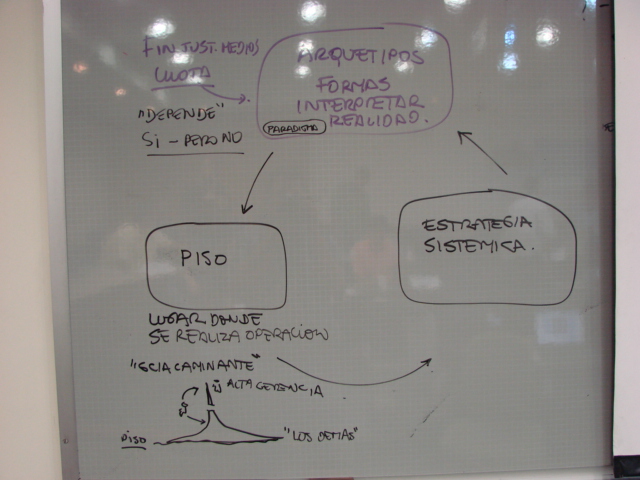 FIN JUST. MEDIOS
CUOTA
"DEPENDE"
SI - PERO NO
ARQUETIPOS
FORMAS
INTERPRETAR
REALIDAD.
PARADIGMA
PISO
LUGAR DONDE
SE REALIZA OPERACION
ESTRATEGIA
SISTEMICA.
CAMINANTE"
ALTA GERENCIA
PISO
"LOS DEMAS"